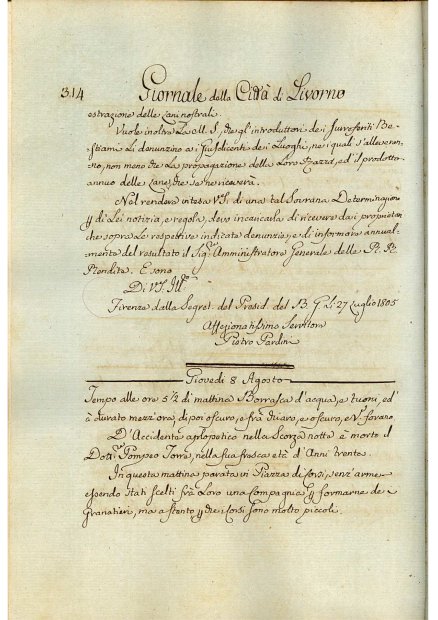 314 Giornale della Città di Livorno
estrazione delle Lani nostrali.
Vuole inoltre La M. S., che gl'introduttori dei surreferiti Be-
stiami Li denunzino ai Giusdicenti dei Luoghi, nei quali s'alleveran-
no, non meno che La propagazione della Loro Razza, ed il prodotto
annuo delle Lane, che se ne ricaverà.
Nel rendere intesa VS. di una tal Sovrana Determinazione
di Lei notizia, e regola, devo incaricarla di ricevere dai proprietari
che sopra Le respettive indicate denunzie, e di informare annual-
mente del resultato il Sig.re Amministratore Generale delle R. R.
Rendite. E sono
Di VS. Ill.
Firenze dalla Segret. del Presid. del B. G. Li 27 Luglio 1805
Affezionatissimo Servitore
Pietro Pardini
Giovedì 8 Agosto
Tempo alle ore 5 1/2 di mattina Borrasca d'acqua, e tuoni, ed
è durato mezz'ora, di poi oscuro, e frà chiaro, e oscuro, e V.
D'Accidente aplopetico nella Scorsa notte è morto il
Dott.re Pompeo Torre, nella sua fresca età d'Anni trenta.
In questa mattina parata in Piazza di Corsi, senz'arme
essendo stati scelti frà Loro una Compagnia formarne de
Granatieri, ma a stento che i Corsi sono molto piccoli.